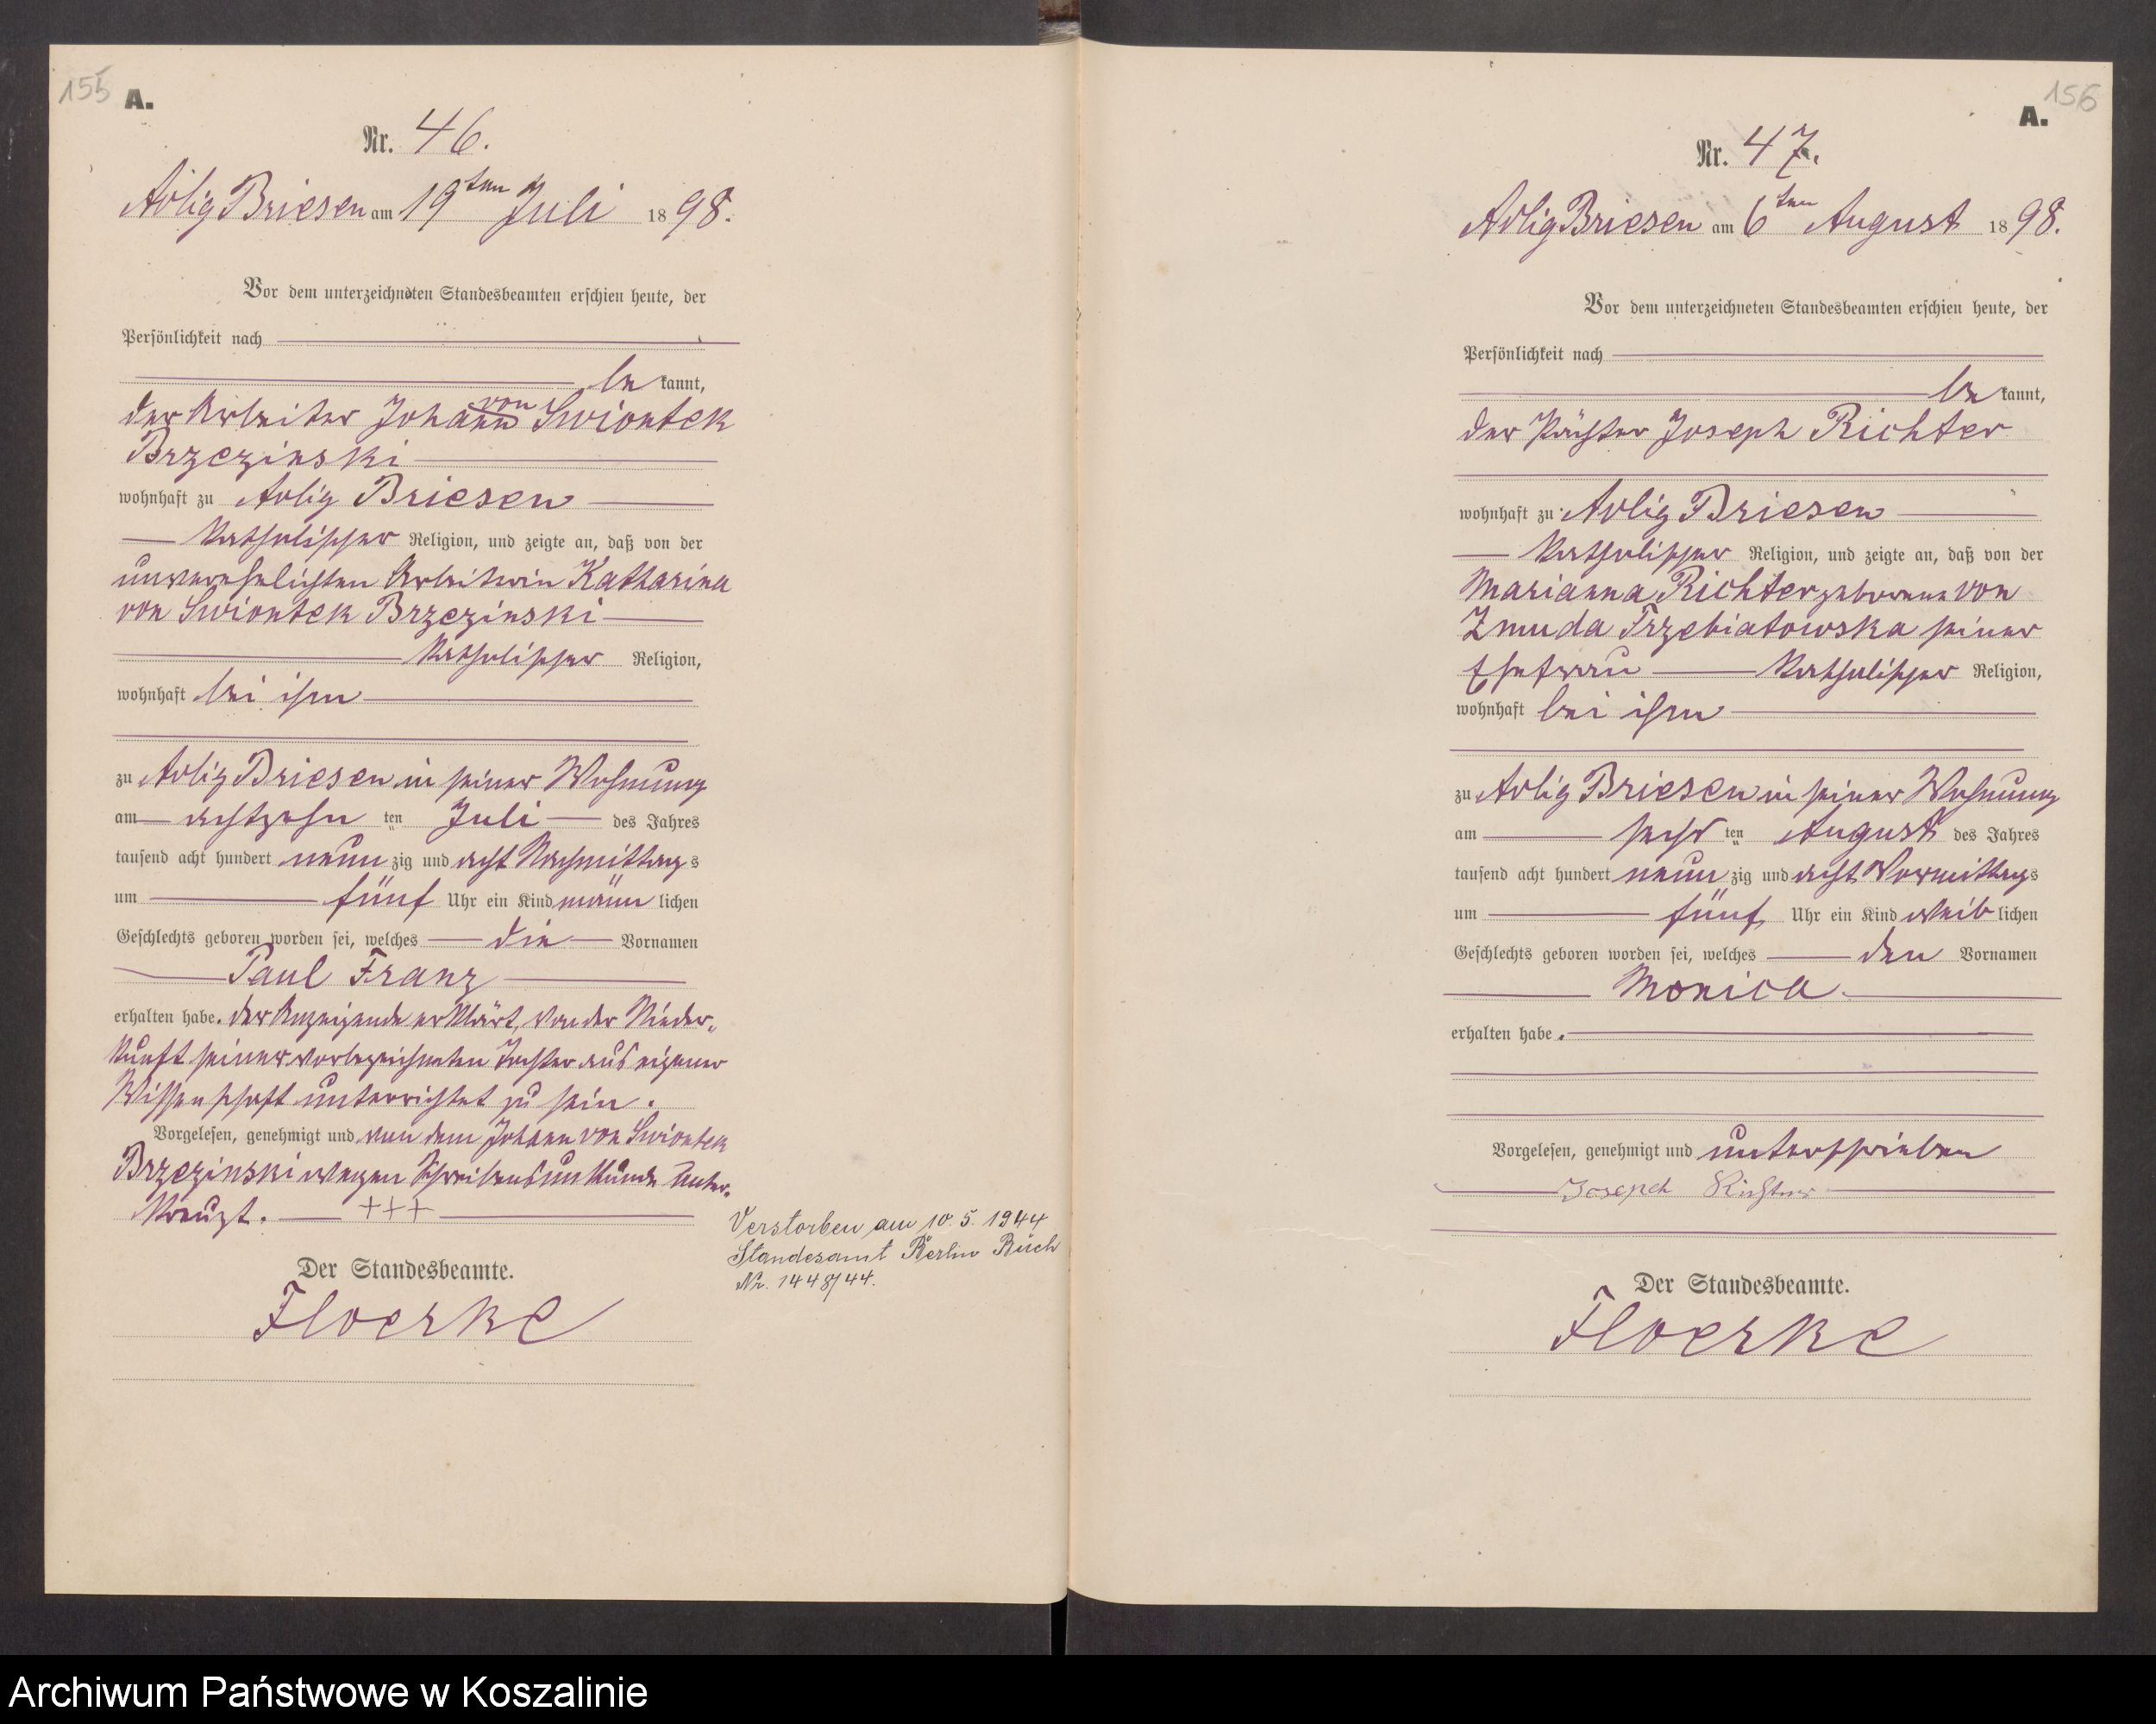 155
A.
Nr. 46.
Adlig Briesen am 19ten Juli 1898.
Vor dem unterzeichneten Standesbeamten erschien heute, der
Persönlichkeit nach
be kannt,
der Arbeiter Johann von Swiontek
Brzezinski
wohnhaft zu Adlig Briesen
katholischer Religion, und zeigte an, daß von der
unverehelichten Arbeiterin Katharina
von Swiontek Brzezinski
katholischer Religion,
wohnhaft bei ihm
zu Adlig Briesen in seiner Wohnung
am achtzehn ten Juli des Jahres
tausend acht hundert neun zig und acht Nachmittag s
um fünf Uhr ein Kind männ lichen
Geschlechts geboren worden sei, welches die Vornamen
Paul Franz
erhalten habe. Der Anzeigende erklärt, von der Nieder-
kunft seiner vorbezeichneten Tochter aus eigener
Wissenschaft unterrichtet zu sein.
Vorgelesen, genehmigt und von dem Johann von Swiontek
Brzezinski wegen Schreibensunkunde unter-
kreuzt. +++
Verstorben am 10. 5. 1944
Standesamt Berlin Buch
Nr. 1448/44.
Der Standesbeamte.
Floerke
156
A.
Nr. 47.
Adlig Briesen am 6ten August 1898.
Vor dem unterzeichneten Standesbeamten erschien heute, der
Persönlichkeit nach
be kannt,
der Joseph Richter
wohnhaft zu Adlig Briesen
katholischer Religion, und zeigte an, daß von der
Marianna Richter geborene von
Zmuda Trzebiatowska seiner
Ehefrau katholischer Religion,
wohnhaft bei ihm
zu Adlig Briesen in seiner Wohnung
am sechs ten August des Jahres
tausend acht hundert neun zig und acht Vormittag s
um fünf Uhr ein Kind weib lichen
Geschlechts geboren worden sei, welches den Vornamen
Monica
erhalten habe.
Vorgelesen, genehmigt und unterschrieben
Joseph Richter
Der Standesbeamte.
Floerke
Archiwum Państwowe w Koszalinie